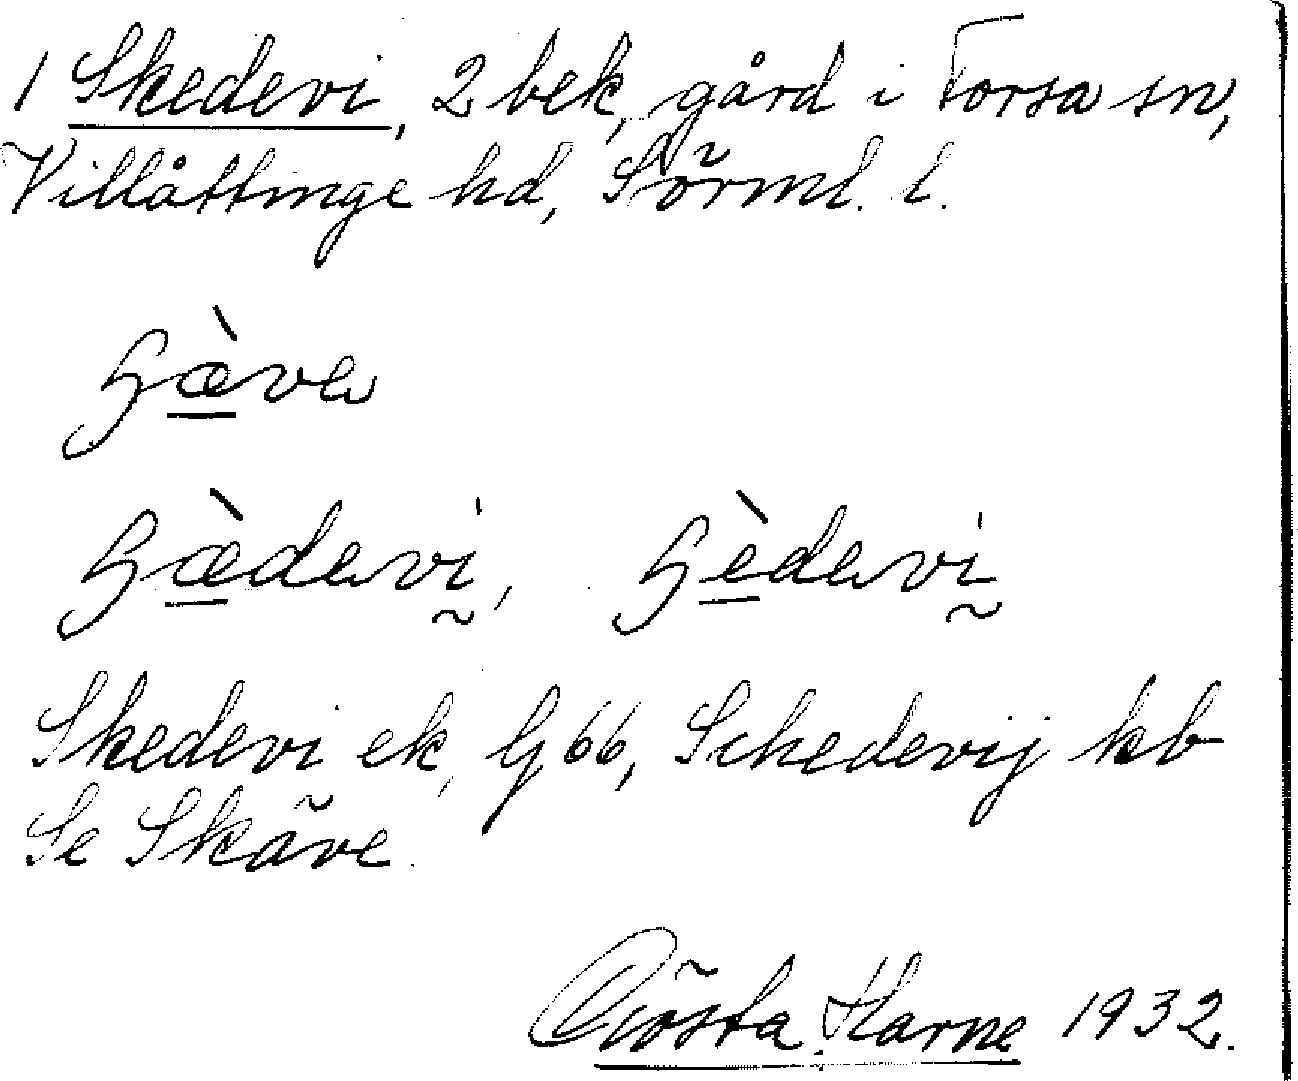 1 Skedevi, 2 bek, gård i Torsa sn,
Villåttinge hd, Sörml. l.
Skedevi ek, G 66, Schedevij kb
Se Skäve.
Gösta Harne 1932.